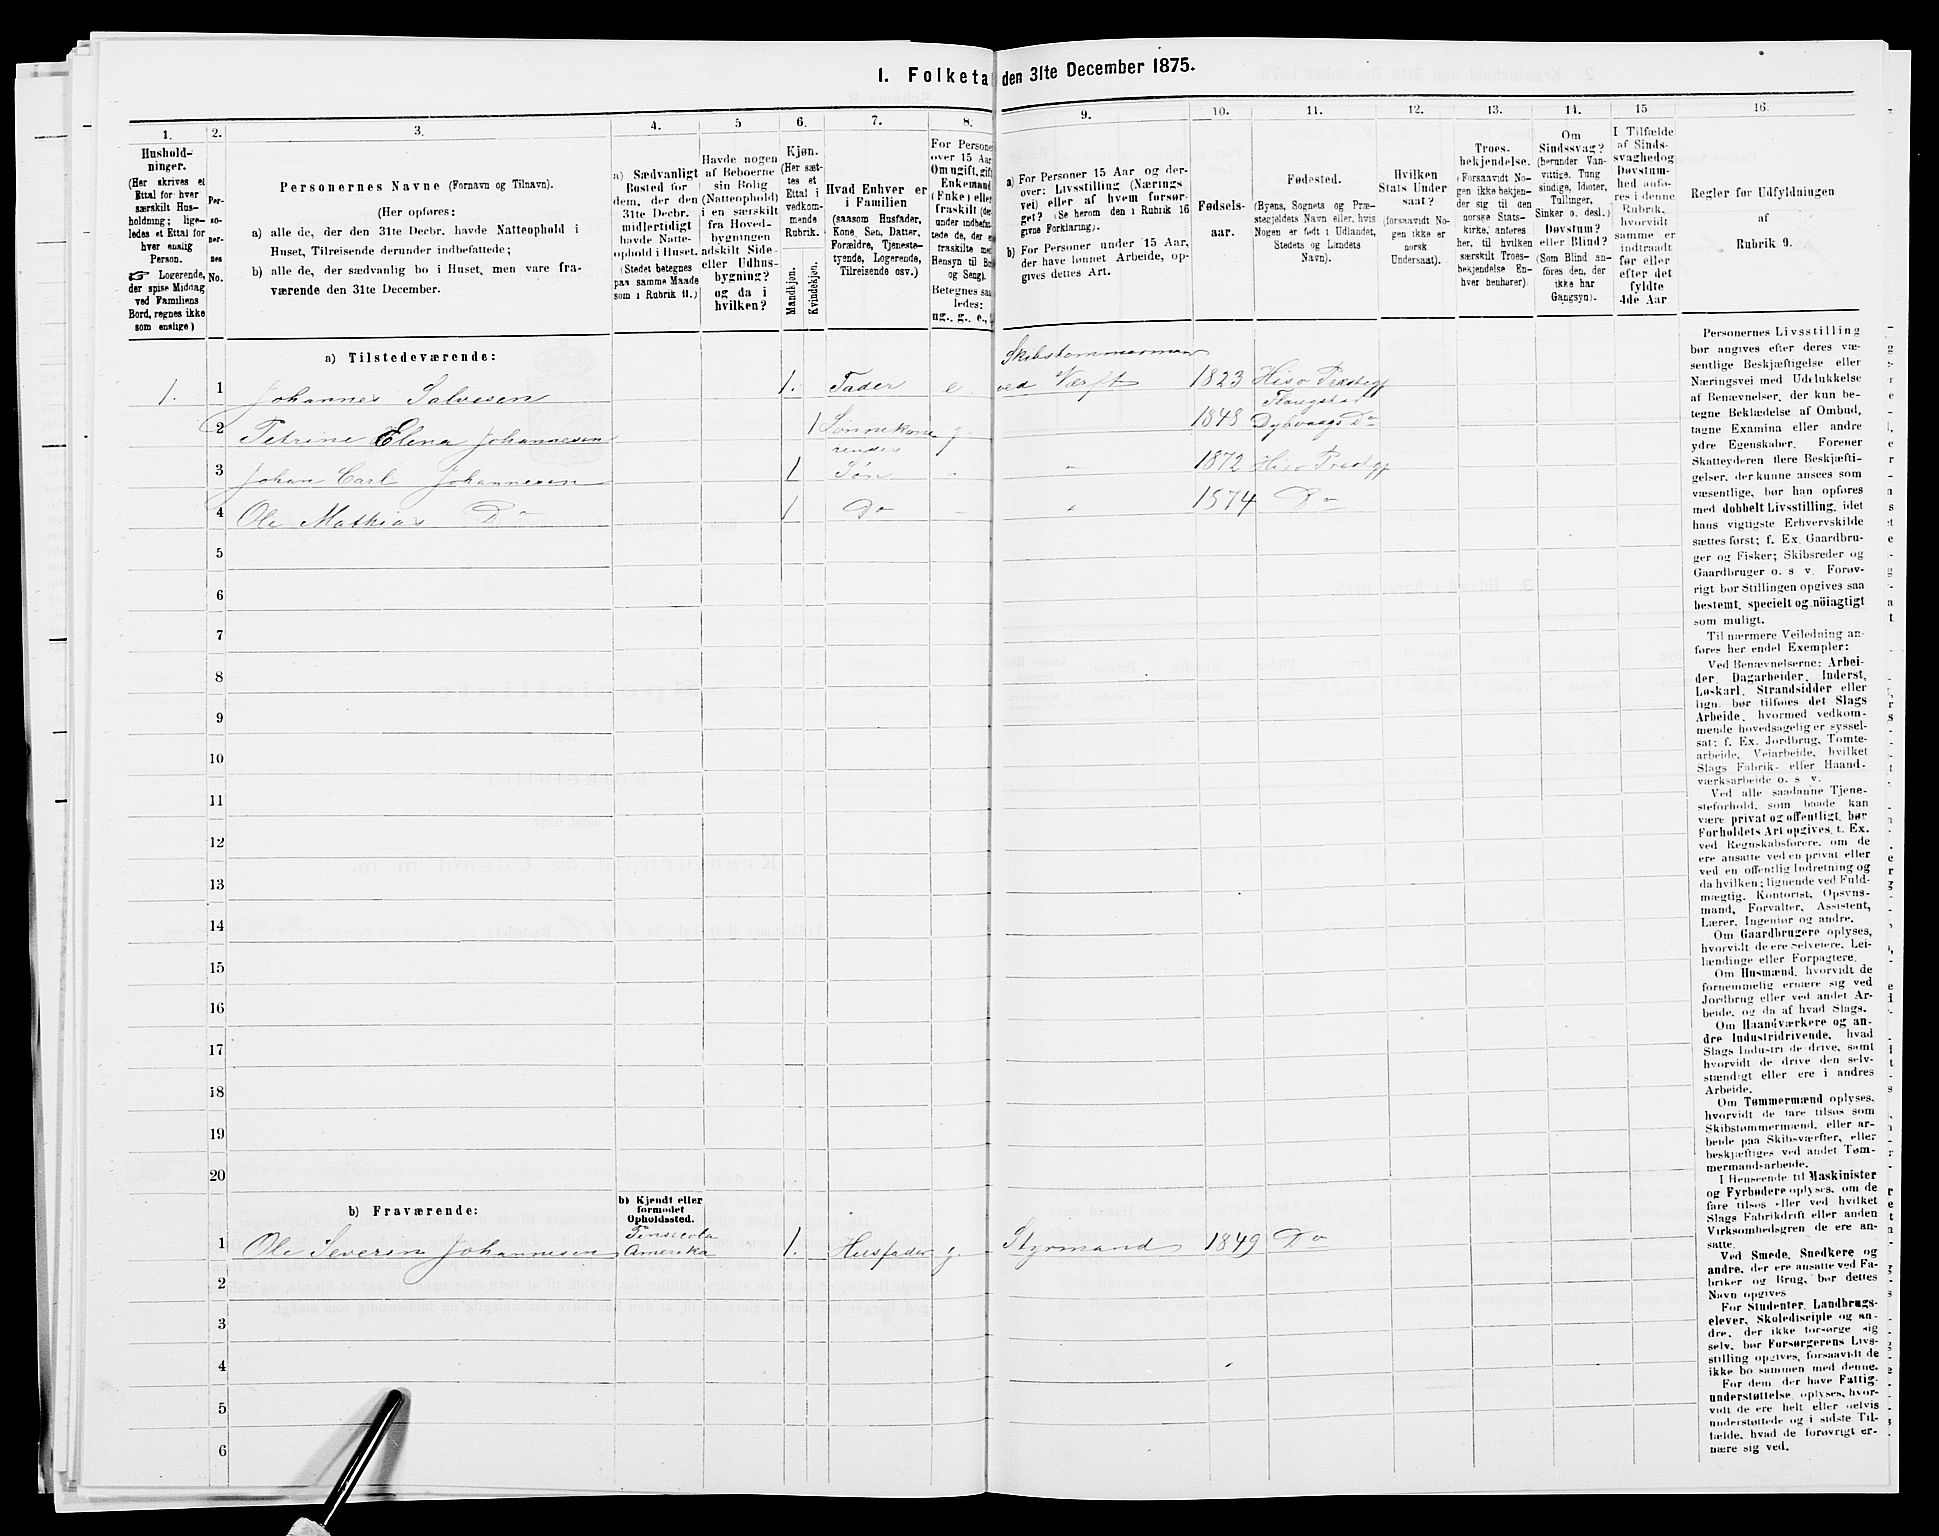 1. Folketæ den 31te December 1875.
1.
2.
3.
4.
5
6.
7.
8.
9.
10.
11.
12.
13.
14.
15
16.
Hushold-
ninger.
(Her skrives et
Ettal for hver
særskilt Hus-
holdning; lige-
ledes et Ettal for
hver enslig
Person.
☞ Logerende,
der spise Middag
ved Familiens
Bord, regnes ikke
som enslige)
Per-
so-
ner-
nes
No.
Personernes Navne (Fornavn og Tilnavn).
(Her opføres:
a) alle de, der den 31te Decbr. havde Natteophold i
Huset, Tilreisende derunder indbefattede;
b) alle de, der sædvanlig bo i Huset, men vare fra-
værende den 31te December.
a) Sædvanligt
Bosted for
dem, der den
31te Decbr.
midlertidigt
havde Natte-
ophold i Huset.
(Stedet betegnes
paa samme Maade
som i Rubrik 11.)
Havde nogen
af Beboerne
sin Bolig
(Natteophold)
i en særskilt
fra Hoved-
bygningen
adskilt Side-
eller Udhus-
bygning?
og da i
hvilken?
Kjøn.
(Her sæt-
tes et
Ettal i
vedkom-
mende
Rubrik.
Mandkjøn.
Kvindekjøn.
Hvad Enhver er
i Familien
(saasom Husfader,
Kone, Søn, Datter,
Forældre, Tjeneste-
tyende, Logerende,
Tilreisende osv.).
For Persone
over 15 Aar
Om ugift, gift
Enkemand
(Enke) eller
fraskilt (de
under indbefat-
tede de, der e
fraskilte me
Hensyn til Bo
og Seng).
Betegnes saa
ledes:
ug., g., e.,
a) For Personer 15 Aar og der-
over: Livsstilling (Nærings
vei) eller af hvem forsør-
get? (Se herom den i Rubrik 16
givne Forklaring).
b) For Personer under 15 Aar,
der have lønnet Arbeide, op-
gives dettes Art.
Fødsels-
aar.
Fødested.
(Byens, Sognets og Præ-
stegjeldets Navn eller, hvis
Nogen er født i Udlandet,
Stedets og Landets
Navn).
Hvilken
Stats Under
saat?
(forsaavidt No-
gen ikke er
norsk
Undersaat).
Troes-
bekjendelse.
(Forsaavidt No-
gen ikke bekjen-
der sig til den
norske Stats-
kirke, anføres
her, til hvilken
særskilt Troes-
bekjendelse En-
hver henhører).
Om
Sindssvag?
(herunder Van-
vittige, Tung
sindige, Idioter,
Tullinger,
Sinker o. desl.)
Døvstum?
eller Blind?
(Som Blind an-
føres den, der
ikke har
Gangsyn).
I Tilfælde
af Sinds-
svaghed og
Døvstum-
hed anfø-
res i denne
Rubrik,
hvorvidt
samme er
indtraadt
før eller
efter det
fyldte
4de Aar
Regler for Udfyldningen
af
Rubrik 9.
a) Tilstedeværende:
Skibstømmermand
1. 1 Johannes Salvesen 1. Fader e ved Værft 1823 Hisø Præstegj
2 Petrine Elena Johannesen 1 Sønnekone g. 1848 Dybvaags Do
3 Johan Carl Johannesen 1 Søn " " 1872 Hisø Præstegj
4 Ole Mathias Do 1 Do " 1874 Do
5
6
7
8
9
10
11
12
13
14
15
16
17
18
19
20
b) Fraværende:
b) Kjendt eller
formodet
Opholdssted.
Pinsecola
1 Ole Severin Johannesen Amerika 1. Husfader g. Styrmand 1849 Do
2
3
4
5
6
Personernes Livsstilling
bør angives efter deres væ-
sentlige Beskjæftigelse eller
Næringsvei med Udelukkelse
af Benævnelser, der kun be-
tegne Beklædelse af Ombud,
tagne Examina eller andre
ydre Egenskaber. Forener
Skatteyderen flere Beskjæfti-
gelser, der kunne ansees som
væsentlige, bør han opføres
med dobbelt Livsstilling, idet
hans vigtigste Erhvervskilde
sættes først; f. Ex. Gaardbru-
ger og Fisker; Skibsreder og
Gaardbruger o. s v. Forøv-
rigt bør Stillingen opgives saa
bestemt, specielt og nöiagtigt
som muligt.
Til nærmere Veiledning an-
føres her endel Exempler:
Ved Benævnelserne: Arbei-
der, Dagarbeider, Inderst,
Løskarl, Strandsidder eller
lign. bør tilføies det Slags
Arbeide, hvormed vedkom-
mende hovedsagelig er syssel-
sat; f. Ex. Jordbrug, Tomte-
arbeide, Veiarbeide, hvilket
Slags Fabrik- eller Haand-
værksarbeide o. s. v.
Ved alle saadanne Tjene-
steforhold, som baade kan
være privat og offentligt, bør
Forholdets Art opgives, t. Ex.
ved Regnskabsførere, om de
ere ansatte ved en privat eller
ved en offentlig Indretning og
da hvilken; lignende ved Fuld-
mægtig, Kontorist, Opsyns-
mand, Forvalter, Assistent,
Lærer, Ingeniør og andre.
Om Gaardbrugere oplyses,
hvorvidt de ere Selveiere, Lei-
lændinge eller Forpagtere.
Om Husmænd, hvorvidt de
fornemmelig ernære sig ved
Jordbrug eller ved andet Ar-
beide, og da af hvad Slags.
Om Haandværkere og an-
dre Industridrivende, hvad
Slags Industri de drive, samt
hvorvidt de drive den selv-
stændigt eller ere i andres
Arbeide.
Om Tømmermænd oplyses,
hvorvidt de fare tilsøs som
Skibstømmermænd, eller ar-
beide paa Skibsværfter, eller
beskjæftiges ved andet Tøm-
mermandsarbeide.
I Henseende til Maskinister
og Fyrbødere oplyses, om de
fare tilsøs eller ved hvilket
Slags Fabrikdrift eller anden
Virksomhedsgren de ere an-
satte.
Ved Smede, Snedkere og
andre, der ere ansatte ved Fa-
briker og Brug, bør dettes
Navn opgives
For Studenter, Landbrugs-
elever, Skoledisciple og an-
dre, der ikke forsørge sig
selv, bør Forsørgerens Livs-
stilling opgives, forsaavidt de
ikke bo sammen med denne.
For dem, der have Fattig-
understøttelse, oplyses, hvor-
vidt de ere helt eller delvis
understøttede og i sidste Til-
fælde, hvad de forøvrigt er-
nære sig ved.